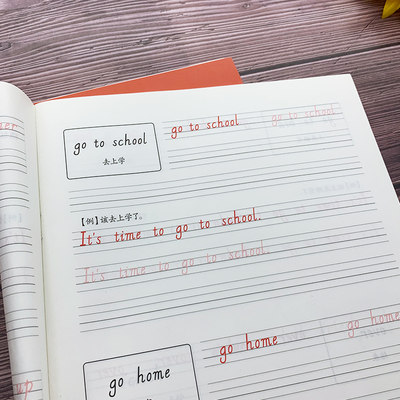 go to school
去上学
go to school
go to school
【例】该去上学了。
It's time to go to school.
It's time to go to school.
go home
go home
go home
up